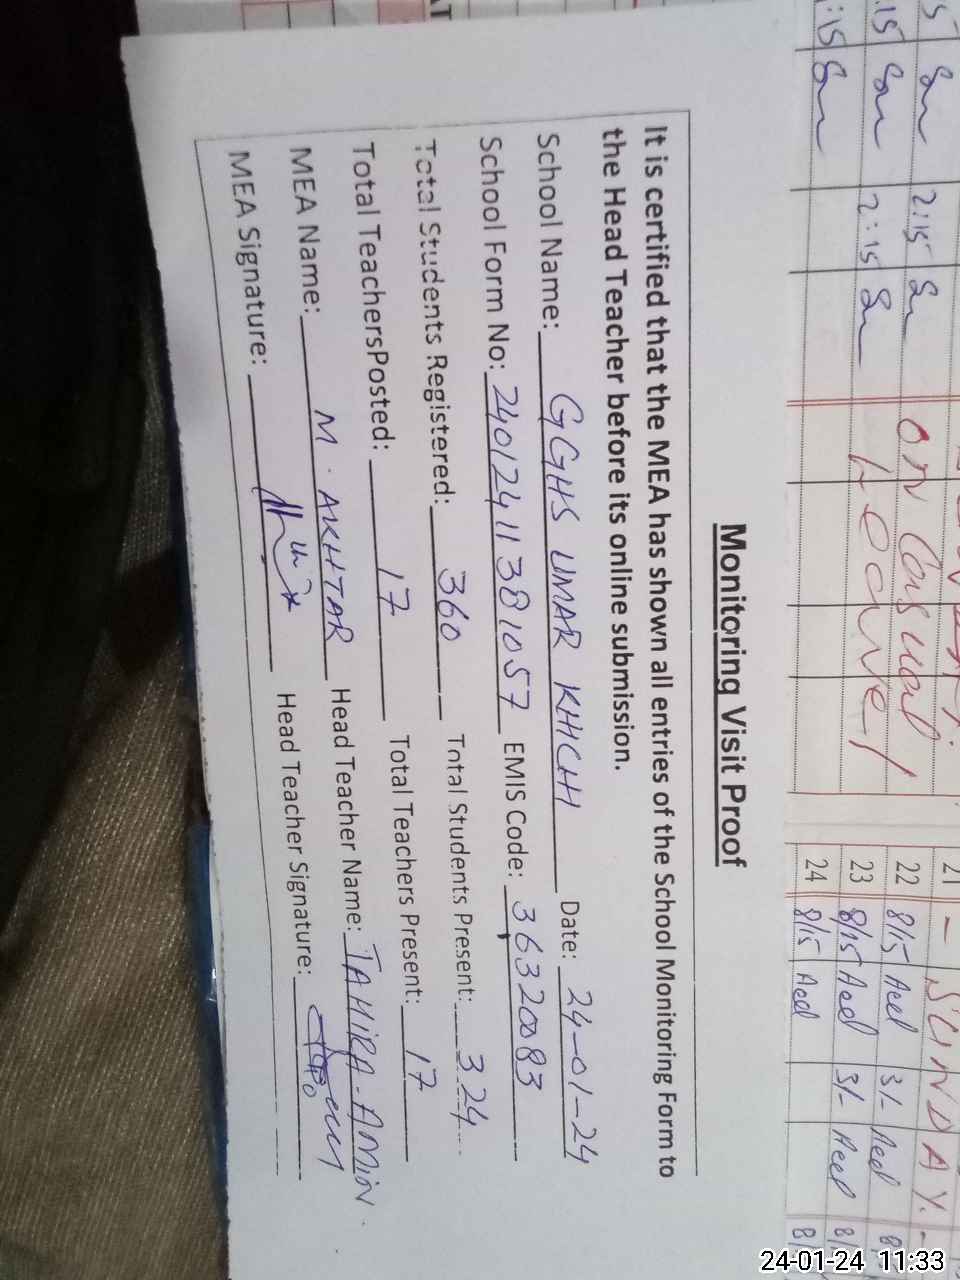 Monitoring Visit Proof
It is certified that the MEA has shown all entries of the School Monitoring Form to
the Head Teacher before its online submission.
School Name: GGHS UMAR KHICHI Date: 24-01-24
School Form No: 24012411381057 EMIS Code: 36320083
Total Students Registered: 360 Total Students Present: 324
Total TeachersPosted: 17 Total Teachers Present: 17
MEA Name: M. AKHTAR Head Teacher Name: TAHIRA AMIN.
MEA Signature: Head Teacher Signature:
on Casual
Leave
2:15
2:15
21 - SUNDAY -
22 8/15 3/-
23 8/15 3/-
24 8/15
24-01-24 11:33